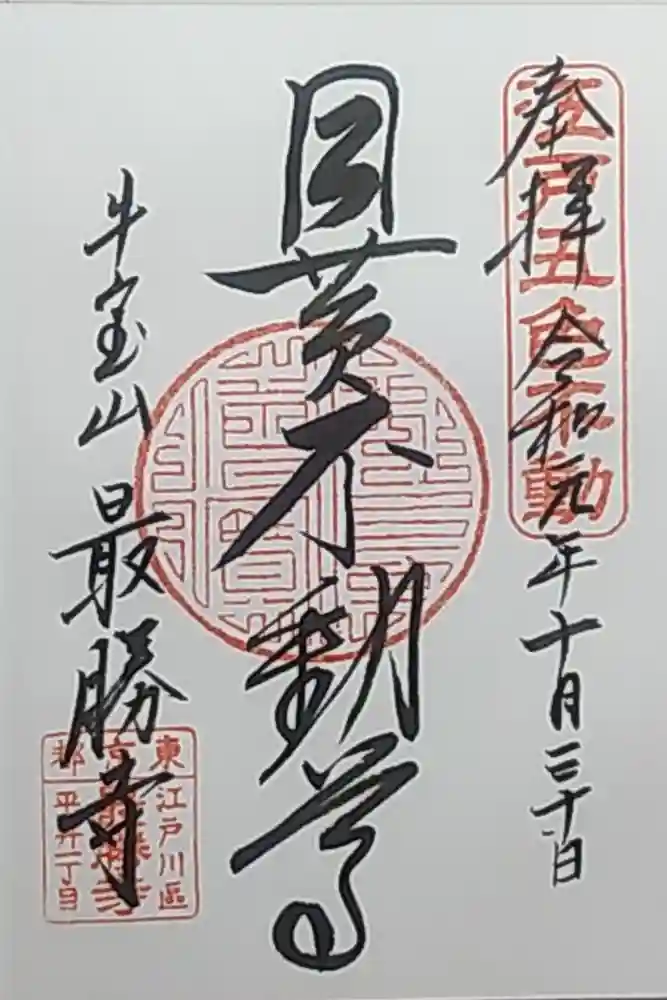 奉拝 令和元年十月三十日
江戸五色不動
目黄不動尊
牛宝山 最勝寺
東京都
江戸川區
最勝寺
平井一丁目